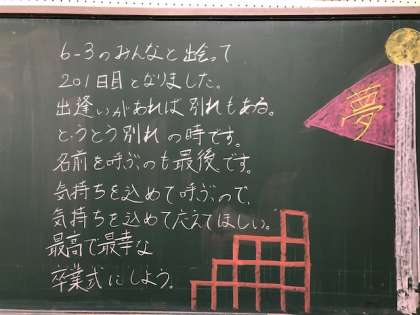 6-3のみんなと出会って
201日目となりました。
出逢いがあれば別れもある。
とうとう別れの時です。
名前を呼ぶのも最後です。
気持ちを込めて呼ぶので、
気持ちを込めて応えてほしい。
最高で最幸な
卒業式にしよう。
夢